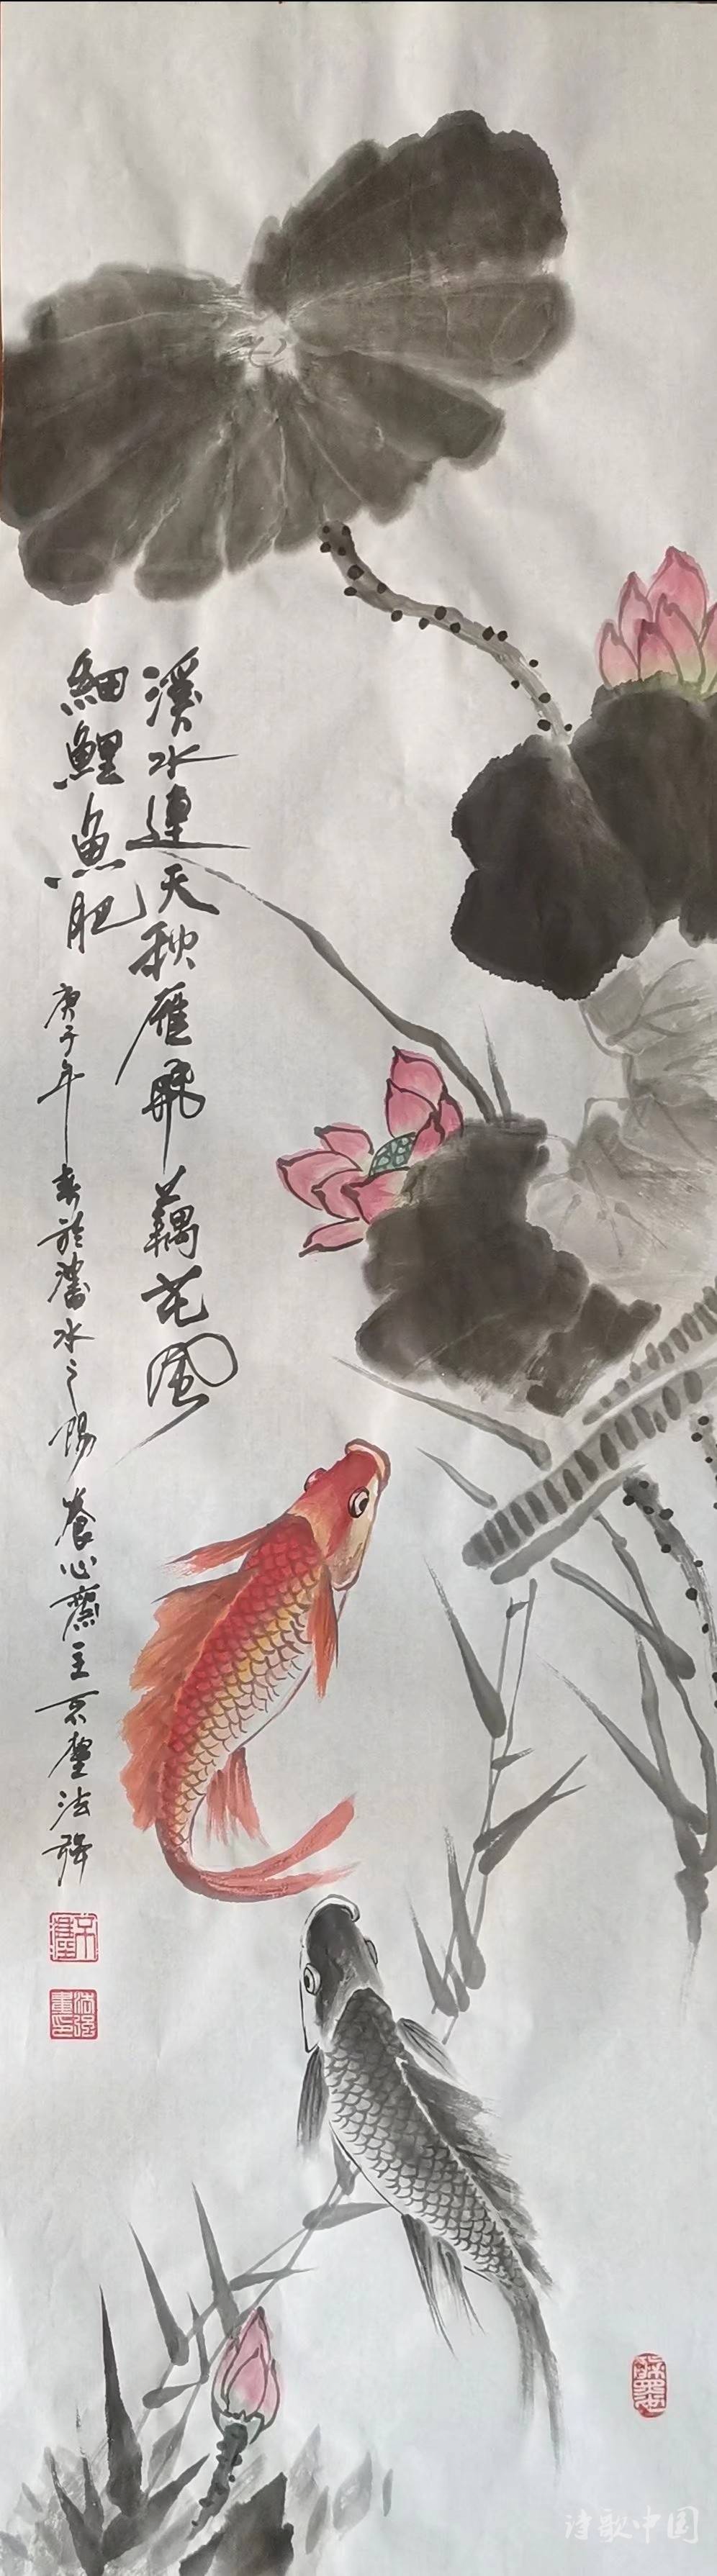 溪水連天秋雁飛藕花風
細鯉魚肥
庚子年春於灞水之陽養心齋主不墾法強
诗歌中国